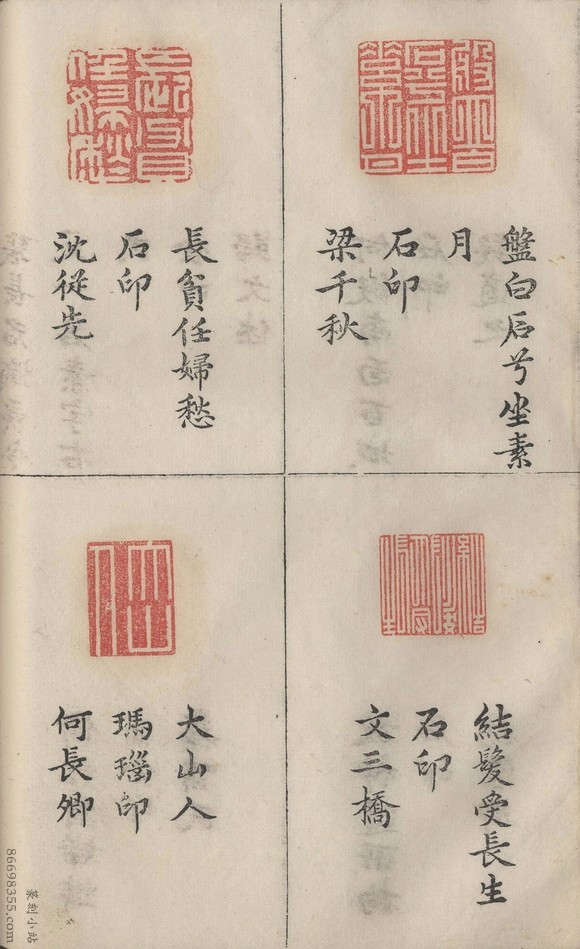 盤白石兮坐素
月
石印
梁千秋
長貧任婦愁
石印
沈從先
結髮受長生
石印
文三橋
大山人
瑪瑙印
何長卿
篆刻小站
86698355.com